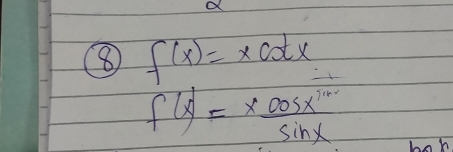 ⑧ f(x) = x cotx
f(x) = x cosx
sinx